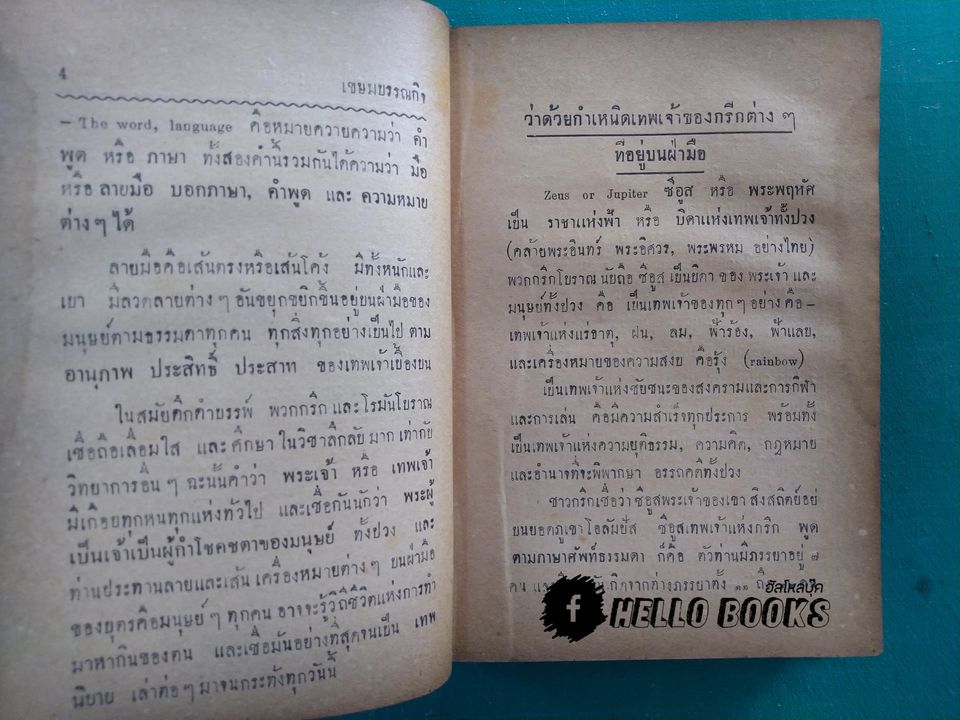 4
เขษมบรรณกิจ
– The word, language คือหมายควายความว่า คำ
พูด หรือ ภาษา ทั้งสองคำนี้รวมกันได้ความว่า มือ
หรือ ลายมือ บอกภาษา, คำพูด และ ความหมาย
ต่าง ๆ ได้
ลายมือคือเส้นตรงหรือเส้นโค้ง มีทั้งหนักและ
เบา มีลวดลายต่าง ๆ อันขยุกขยิกขึ้นอยู่บนฝ่ามือของ
มนุษย์ตามธรรมดาทุกคน ทุกสิ่งทุกอย่างเป็นไป ตาม
อานุภาพ ประสิทธิ์ ประสาท ของเทพเจ้าเบื้องบน
ในสมัยดึกดำบรรพ์ พวกกรีก และ โรมันโบราณ
เชื่อถือเลื่อมใส และ ศึกษา ในวิชาลึกลับ มาก เท่ากับ
วิทยาการอื่น ๆ ฉะนั้นคำว่า พระเจ้า หรือ เทพเจ้า
มีเกือบทุกหนทุกแห่งทั่วไป และเชื่อกันนักว่า พระผู้
เป็นเจ้าเป็นผู้กำโชคชตาของมนุษย์ ทั้งปวง และ
ท่านประทานลายและเส้น เครื่องหมายต่าง ๆ บนฝ่ามือ
ของบุตรคือมนุษย์ ๆ ทุกคน อาจจะรู้วิถีชีวิตแห่งการทำ
มาหากินของตน และเชื่อมั่นอย่างที่สุดจนเป็น เทพ
นิยาย เล่าต่อ ๆ มาจนกระทั่งทุกวันนี้
ว่าด้วยกำเหนิดเทพเจ้าของกรีกต่าง ๆ
ที่อยู่บนฝ่ามือ
Zeus or Jupiter ซีอูส หรือ พระพฤหัศ
เป็น ราชาแห่งฟ้า หรือ บิดาแห่งเทพเจ้าทั้งปวง
(คล้ายพระอินทร์ พระอิศวร, พระพรหม อย่างไทย)
พวกกรีกโบราณ นับถือ ซีอูส เป็นบิดา ของ พระเจ้า และ
มนุษย์ทั้งปวง คือ เป็นเทพเจ้าของทุก ๆ อย่าง คือ–
เทพเจ้าแห่งแร่ธาตุ, ฝน, ลม, ฟ้าร้อง, ฟ้าแลบ,
และเครื่องหมายของความสงบ คือรุ้ง (rainbow)
เป็นเทพเจ้าแห่งชัยชนะของสงครามและการกีฬา
และการเล่น คือมีความสำเร็จทุกประการ พร้อมทั้ง
เป็นเทพเจ้าแห่งความยุติธรรม, ความคิด, กฎหมาย
และอำนาจที่จะพิพากษา อรรถคดีทั้งปวง
ชาวกรีกเชื่อว่า ซีอูสพระเจ้าของเขา สิงสถิตย์อยู่
บนยอดภูเขาโอลัมปัส ซีอูสเทพเจ้าแห่งกรีก พูด
ตามภาษาศัพท์ธรรมดา ก็คือ ตัวท่านมีภรรยาอยู่ ๗
คน กิดจากต่างภรรยาตั้ง ๑๑
ฮัลโหลบุ๊ค
f HELLO BOOKS